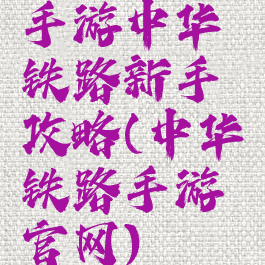 手游中华
铁路新手
攻略(中华
铁路手游
官网)